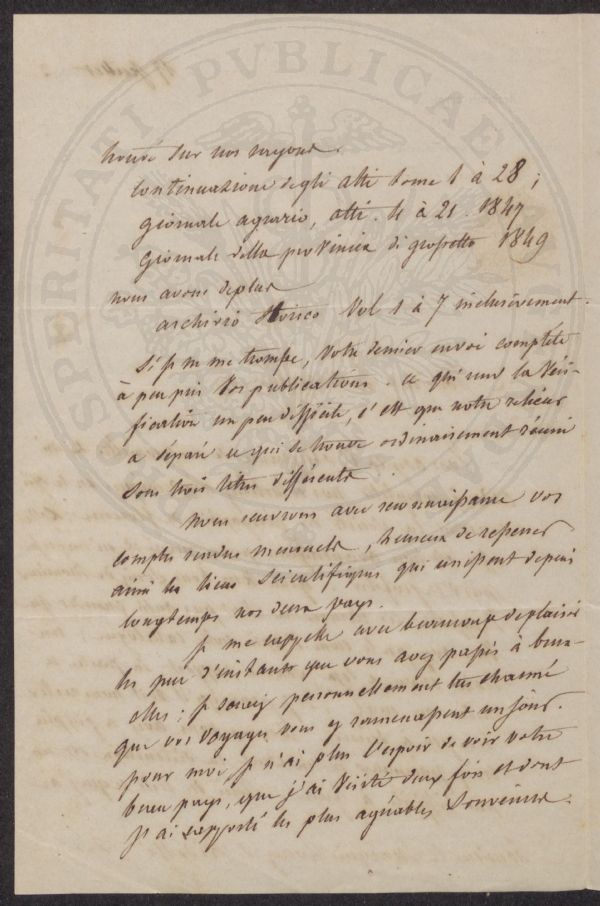 trouvé sur nos rayons.
Continuazione degli atti tome 1 à 28;
giornale agrario, atti. 4 à 21. 1847
giornale della provincia di grossetto 1849
nous avons de plus
archivio storico Vol 1 à 7 inclusivement.
Si je ne me trompe, votre dernier envoi complète
à peu près vos publications. Ce qui rend la véri-
fication un peu difficile, c'est que notre relieur
a séparé ce qui se trouve ordinairement réuni
sous trois titres différents.
Nous recevrons avec reconnaissance vos
comptes rendus mensuels, heureux de resserrer
ainsi les liens scientifiques qui unissent depuis
longtemps nos deux pays.
Je me rappelle avec beaucoup de plaisir
les peu d'instants que vous avez passés à brux-
elles; je serais personnellement très charmé
que vos voyages vous y ramenassent un jour.
pour moi, je n'ai plus l'espoir de voir votre
beau pays, que j'ai visité deux fois et dont
j'ai rapporté les plus agréables souvenirs.
PVBLICAE
SPERITATI